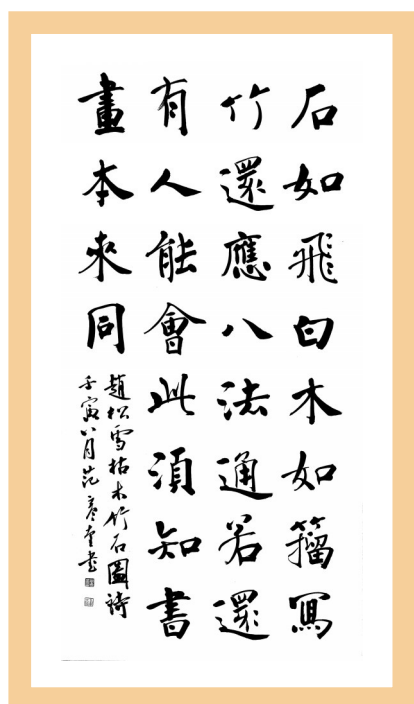 石如飛白木如籀寫
竹還應八法通若還
有人能會此須知書
畫本來同
趙松雪枯木竹石圖詩
壬寅八月范書